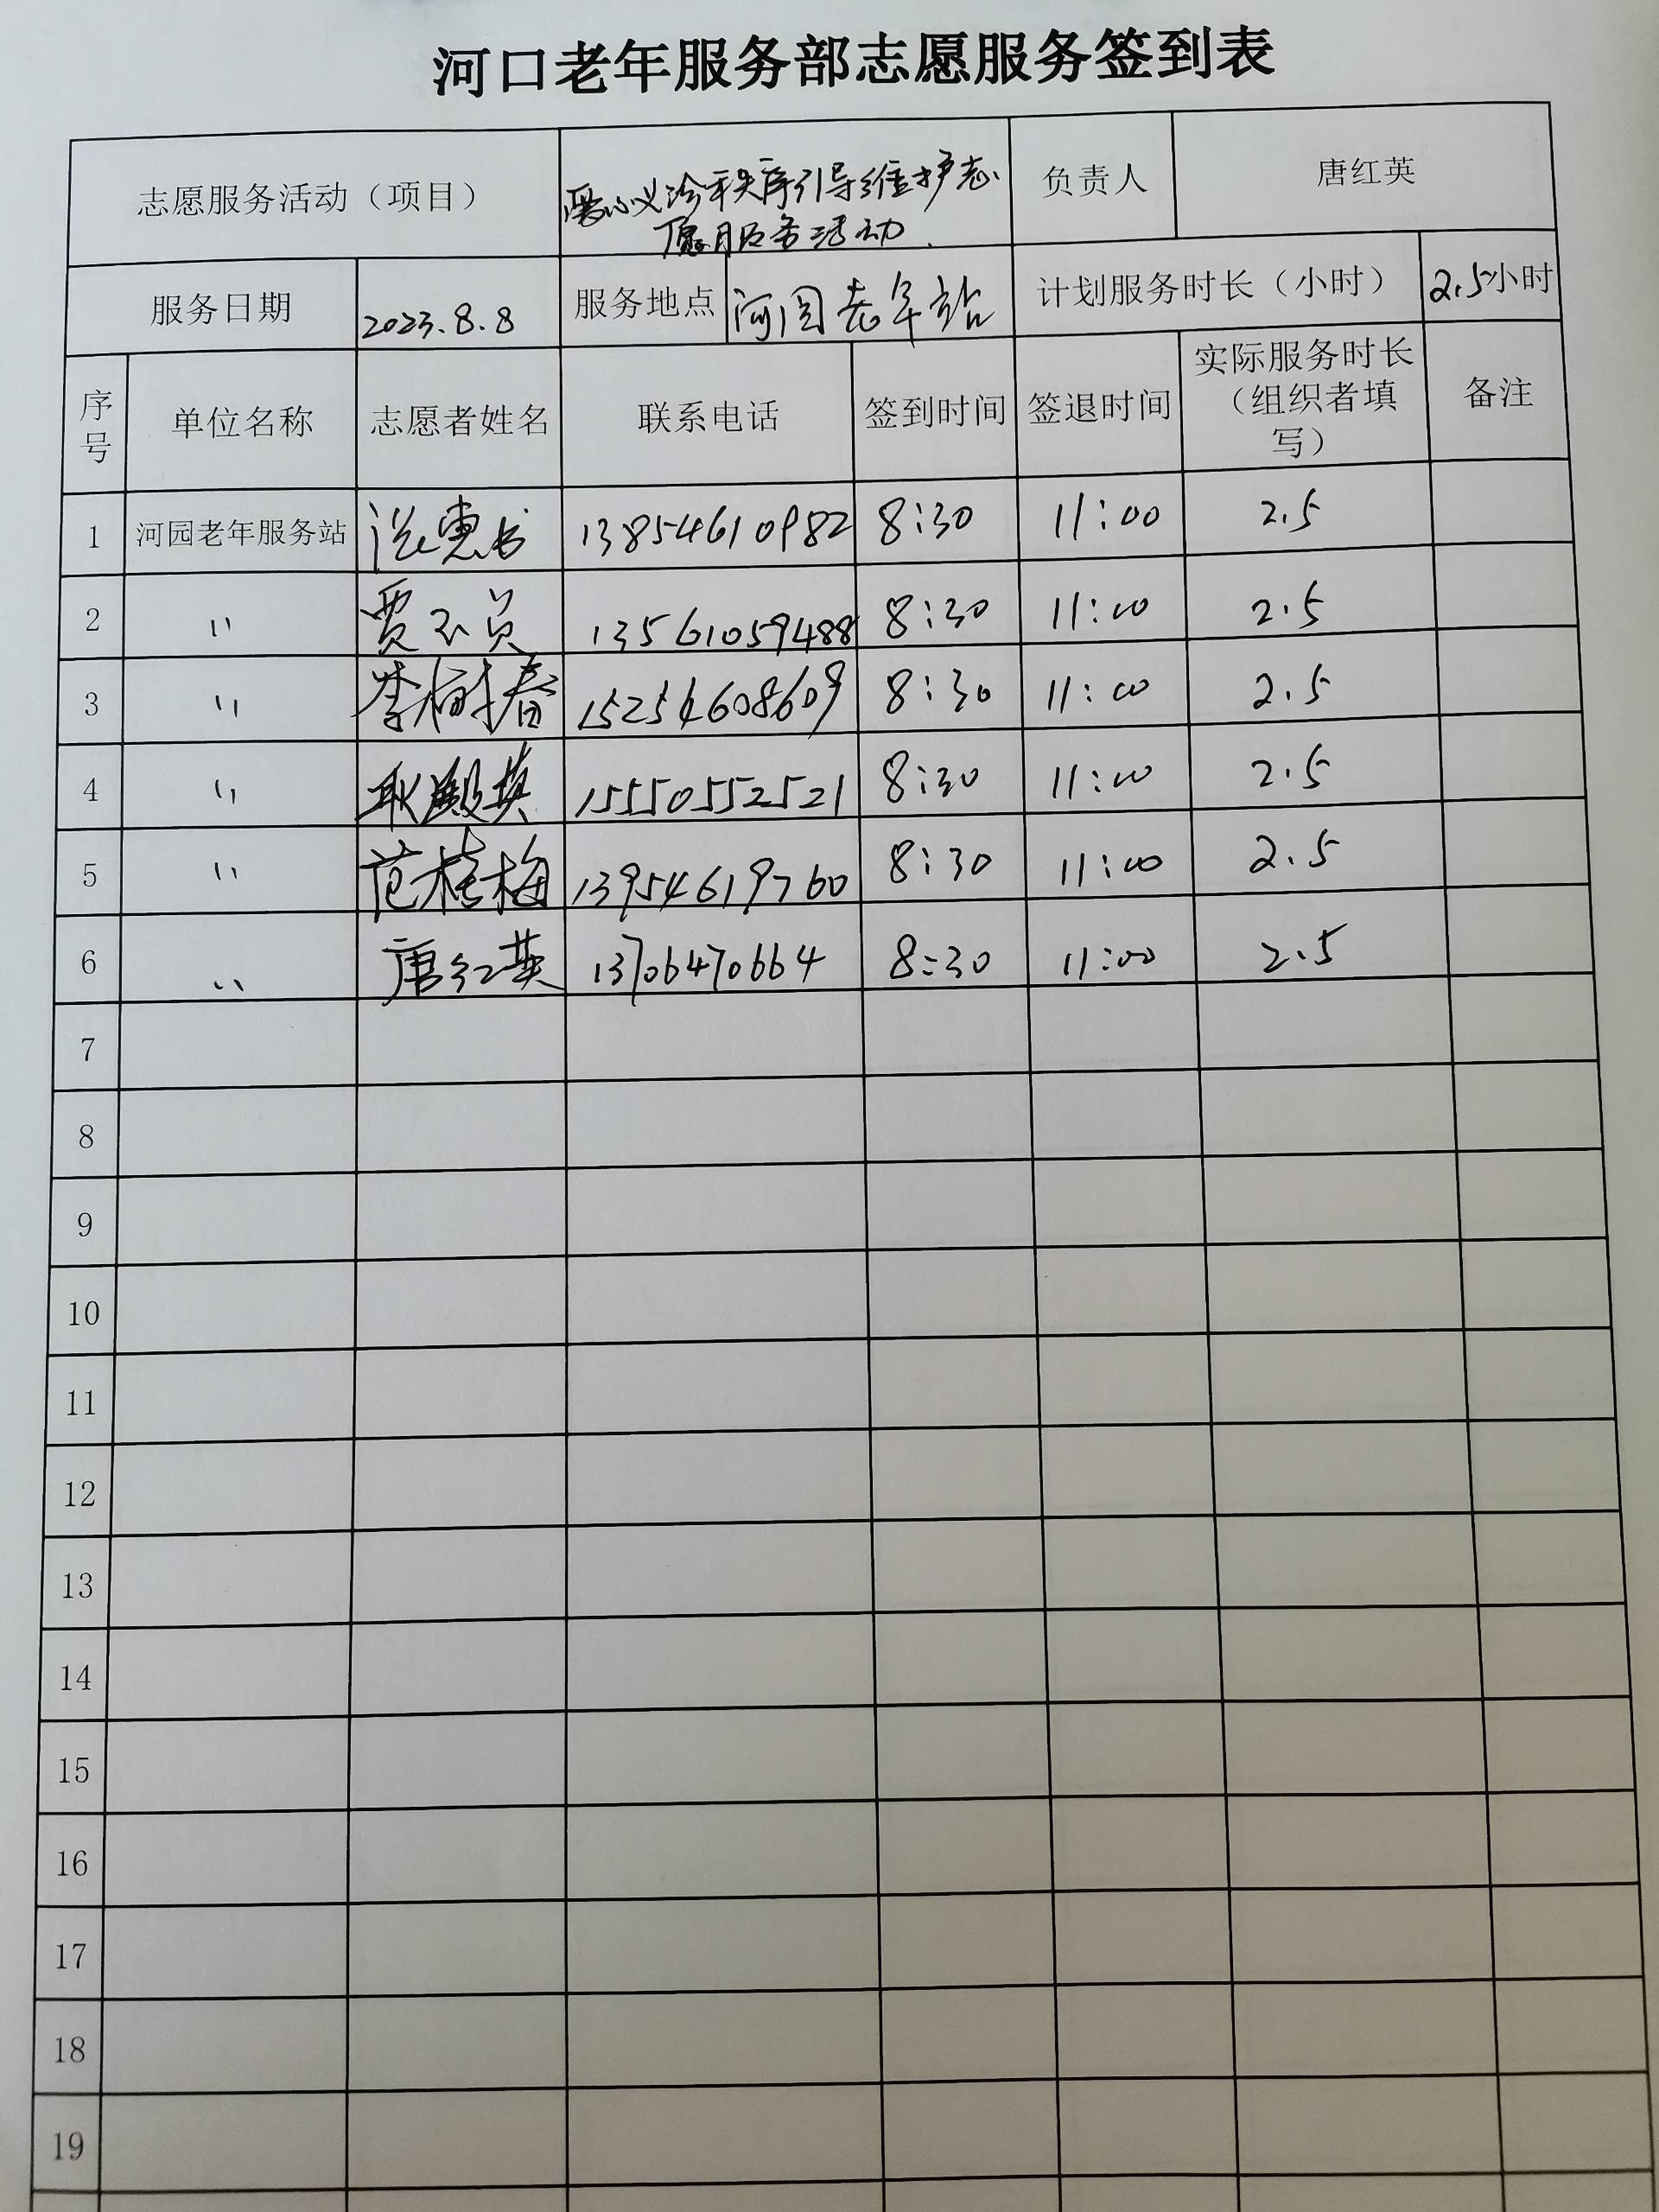 河口老年服务部志愿服务签到表
志愿服务活动（项目） 爱心义诊秩序引导维护志愿服务活动 负责人 唐红英
服务日期 2023.8.8 服务地点 河园老年站 计划服务时长（小时） 2.5小时
序号 单位名称 志愿者姓名 联系电话 签到时间 签退时间 实际服务时长（组织者填写） 备注
1 河园老年服务站 13854610982 8:30 11:00 2.5
2 〃 13561059488 8:30 11:00 2.5
3 〃 李树春 15254608609 8:30 11:00 2.5
4 〃 15550552521 8:30 11:00 2.5
5 〃 范桂梅 13954619760 8:30 11:00 2.5
6 〃 唐红英 13706470664 8:30 11:00 2.5
7
8
9
10
11
12
13
14
15
16
17
18
19